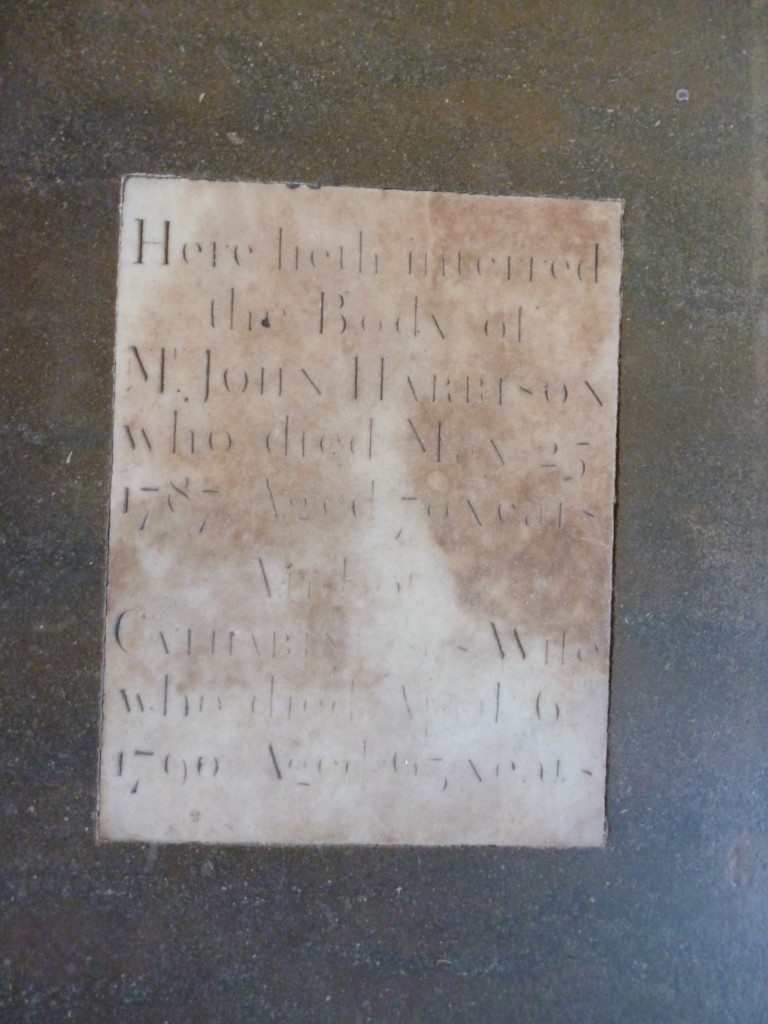 Here lieth interred
the Body of
Mr. JOHN HARRISON
who died May 25
1787 Aged 70 years
And of
CATHARINE his Wife
who died April 6
1790 Aged 67 years